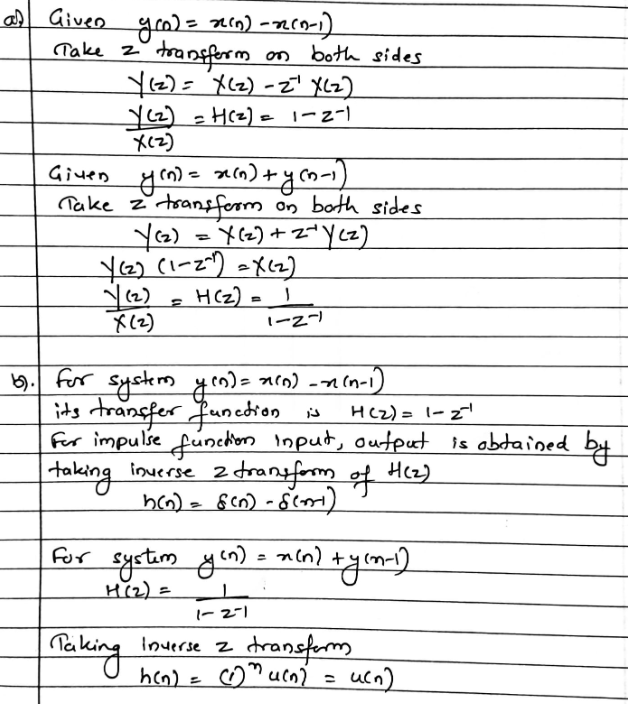 a) Given y(n) = x(n) - x(n-1)
Take z transform on both sides
Y(z) = X(z) - z⁻¹ X(z)
Y(z)/X(z) = H(z) = 1 - z⁻¹
Given y(n) = x(n) + y(n-1)
Take z transform on both sides
Y(z) = X(z) + z⁻¹ Y(z)
Y(z) (1 - z⁻¹) = X(z)
Y(z)/X(z) = H(z) = 1/(1 - z⁻¹)
b). For system y(n) = x(n) - x(n-1)
its transfer function is H(z) = 1 - z⁻¹
For impulse function input, output is obtained by
taking inverse z transform of H(z)
h(n) = δ(n) - δ(n-1)
For system y(n) = x(n) + y(n-1)
H(z) = 1/(1 - z⁻¹)
Taking inverse z transform
h(n) = (1)ⁿ u(n) = u(n)